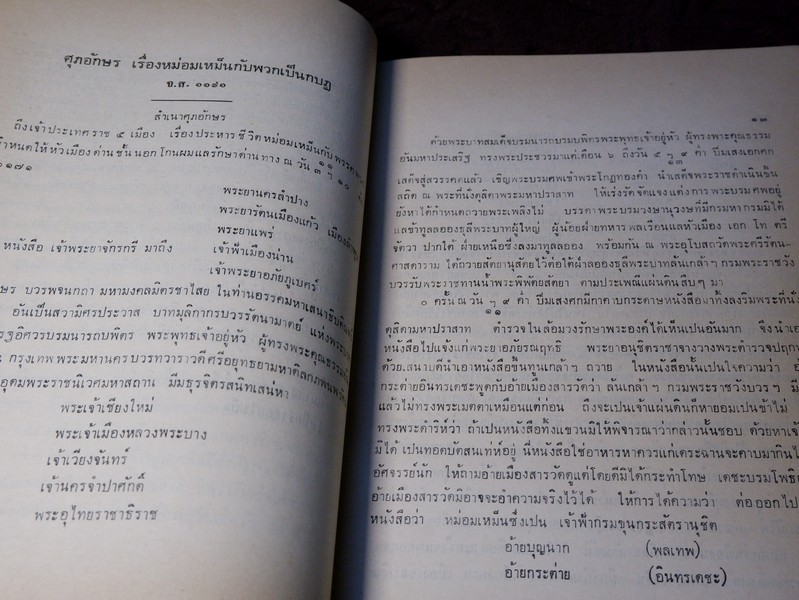 ศุภอักษร เรื่องหม่อมเหม็นกับพวกเป็นกบฏ
จ.ศ. ๑๑๗๑
สำเนาศุภอักษร
ถึงเจ้าประเทศราช ๕ เมือง เรื่องประหารชีวิตหม่อมเหม็นกับพรรค
กำหนดให้หัวเมืองด่านชั้นนอกโกนผมแลรักษาด่านทาง ณ วัน
๑๑๗๑
พระยานครลำปาง
พระยารัตนเมืองแก้ว
พระยาแพร่
หนังสือ เจ้าพระยาจักรกรี มาถึง เจ้าฟ้าเมืองน่าน
เจ้าพระยาอภัยภูเบศร์
ษร บวรพจนกถา มหามงคลมิตรชาไสย ในท่านอรรคมหาเสนาธิบดินทร์
อันเป็นสวามิศรประวาส บาทมุลิกากรบวรรัตนามาตย์ แห่งพระบาท
รฐอิศวรบรมนารถบพิตร พระพุทธเจ้าอยู่หัว ผู้ทรงพระคุณธรรม
กรุงเทพพระมหานคร บวรทวาราวดีศรีอยุทธยามหาดิลกภพนพรัตน
อุดมพระราชนิเวศมหาสถาน มีมธุรจิตรสนิทเสน่หา
พระเจ้าเชียงใหม่
พระเจ้าเมืองหลวงพระบาง
เจ้าเวียงจันทร์
เจ้านครจำปาศักดิ์
พระอุไทยราชาธิราช
๑๓
ด้วยพระบาทสมเด็จบรมนารถบรมบพิตรพระพุทธเจ้าอยู่หัว ผู้ทรงพระคุณธรรม
อันมหาประเสริฐ ทรงพระประชวรมาแต่เดือน ๖ ถึงวัน ๕ ๑๓ฯ ๙ ค่ำ ปีมเสงเอกศก
เสด็จสู่สวรรคตแล้ว เชิญพระบรมศพเข้าพระโกฏทองคำ นำเสด็จพระราชดำเนินขึ้น
สถิต ณ พระที่นั่งดุสิตามหาปราสาท ให้เร่งรัดจัดแจงแต่งการพระบรมศพอยู่
ยังหาได้กำหนดถวายพระเพลิงไม่ บรรดาพระบรมวงษานุวงษที่มีกรมหากรมมิได้
แลข้าทูลลอองธุลีพระบาทผู้ใหญ่ ผู้น้อยฝ่ายทหารพลเรือนแลหัวเมือง เอก โท ตรี
จัตวา ปากใต้ ฝ่ายเหนือซึ่งลงมาทูลลออง พร้อมกัน ณ พระอุโบสถวัดพระศรีรัตน-
ศาสดาราม ได้ถวายสัตยานุสัตย์ไว้ต่อใต้ฝ่าลอองธุลีพระบาทล้นเกล้าฯ กรมพระราชวัง
บวรรับพระราชทานน้ำพระพิพัฒสัตยา ตามประเพณีแผ่นดินสืบๆ มา
๐ ครั้น ณ วัน ๑ ๑๑ฯ ๙ ค่ำ ปีมเสงศกมีกาคาบกระดาษหนังสือมาทิ้งลงริมพระที่นั่ง
ดุสิตามหาปราสาท ตำรวจในล้อมวงรักษาพระองค์ได้เห็นเป็นอันมาก จึงนำเอา
หนังสือไปแจ้งแก่พระยาอภัยรณฤทธิ พระยาอนุชิตราชาจางวางพระตำรวจปฤกษา
ด้วยเสนาบดีนำเอาหนังสือขึ้นทูนเกล้าฯ ถวาย ในหนังสือนั้นเป็นใจความว่า
กระต่ายอินทรเดชะพูดกับอ้ายเมืองสารวัดว่า ล้นเกล้าฯ กรมพระราชวังบวรฯ
แล้วไม่ทรงพระเมตตาเหมือนแต่ก่อน ถึงจะเป็นเจ้าแผ่นดินก็หายอมเป็นข้าไม่
ทรงพระดำริห์ว่า ถ้าเป็นหนังสือทิ้งแขวนมิให้พิจารณาว่ากล่าวนั้นชอบ ด้วยหาเจ้า
มิได้ เป็นทอดบัตสนเท่ห์อยู่ นี่หนังสือใช่อาหารหาควรแก่เดระฉานจะคาบมากินไ
อัศจรรย์นัก ให้ถามอ้ายเมืองสารวัดดูแต่โดยดีมิได้กระทำโทษ เดชะบรมโพธิ
อ้ายเมืองสารวัดมิอาจจะอำความจริงไว้ได้ ให้การได้ความว่า ต่อออกไป
หนังสือว่า หม่อมเหม็นซึ่งเป็น เจ้าฟ้ากรมขุนกระสัตรานุชิต
อ้ายบุญนาก (พลเทพ)
อ้ายกระต่าย (อินทรเดชะ)